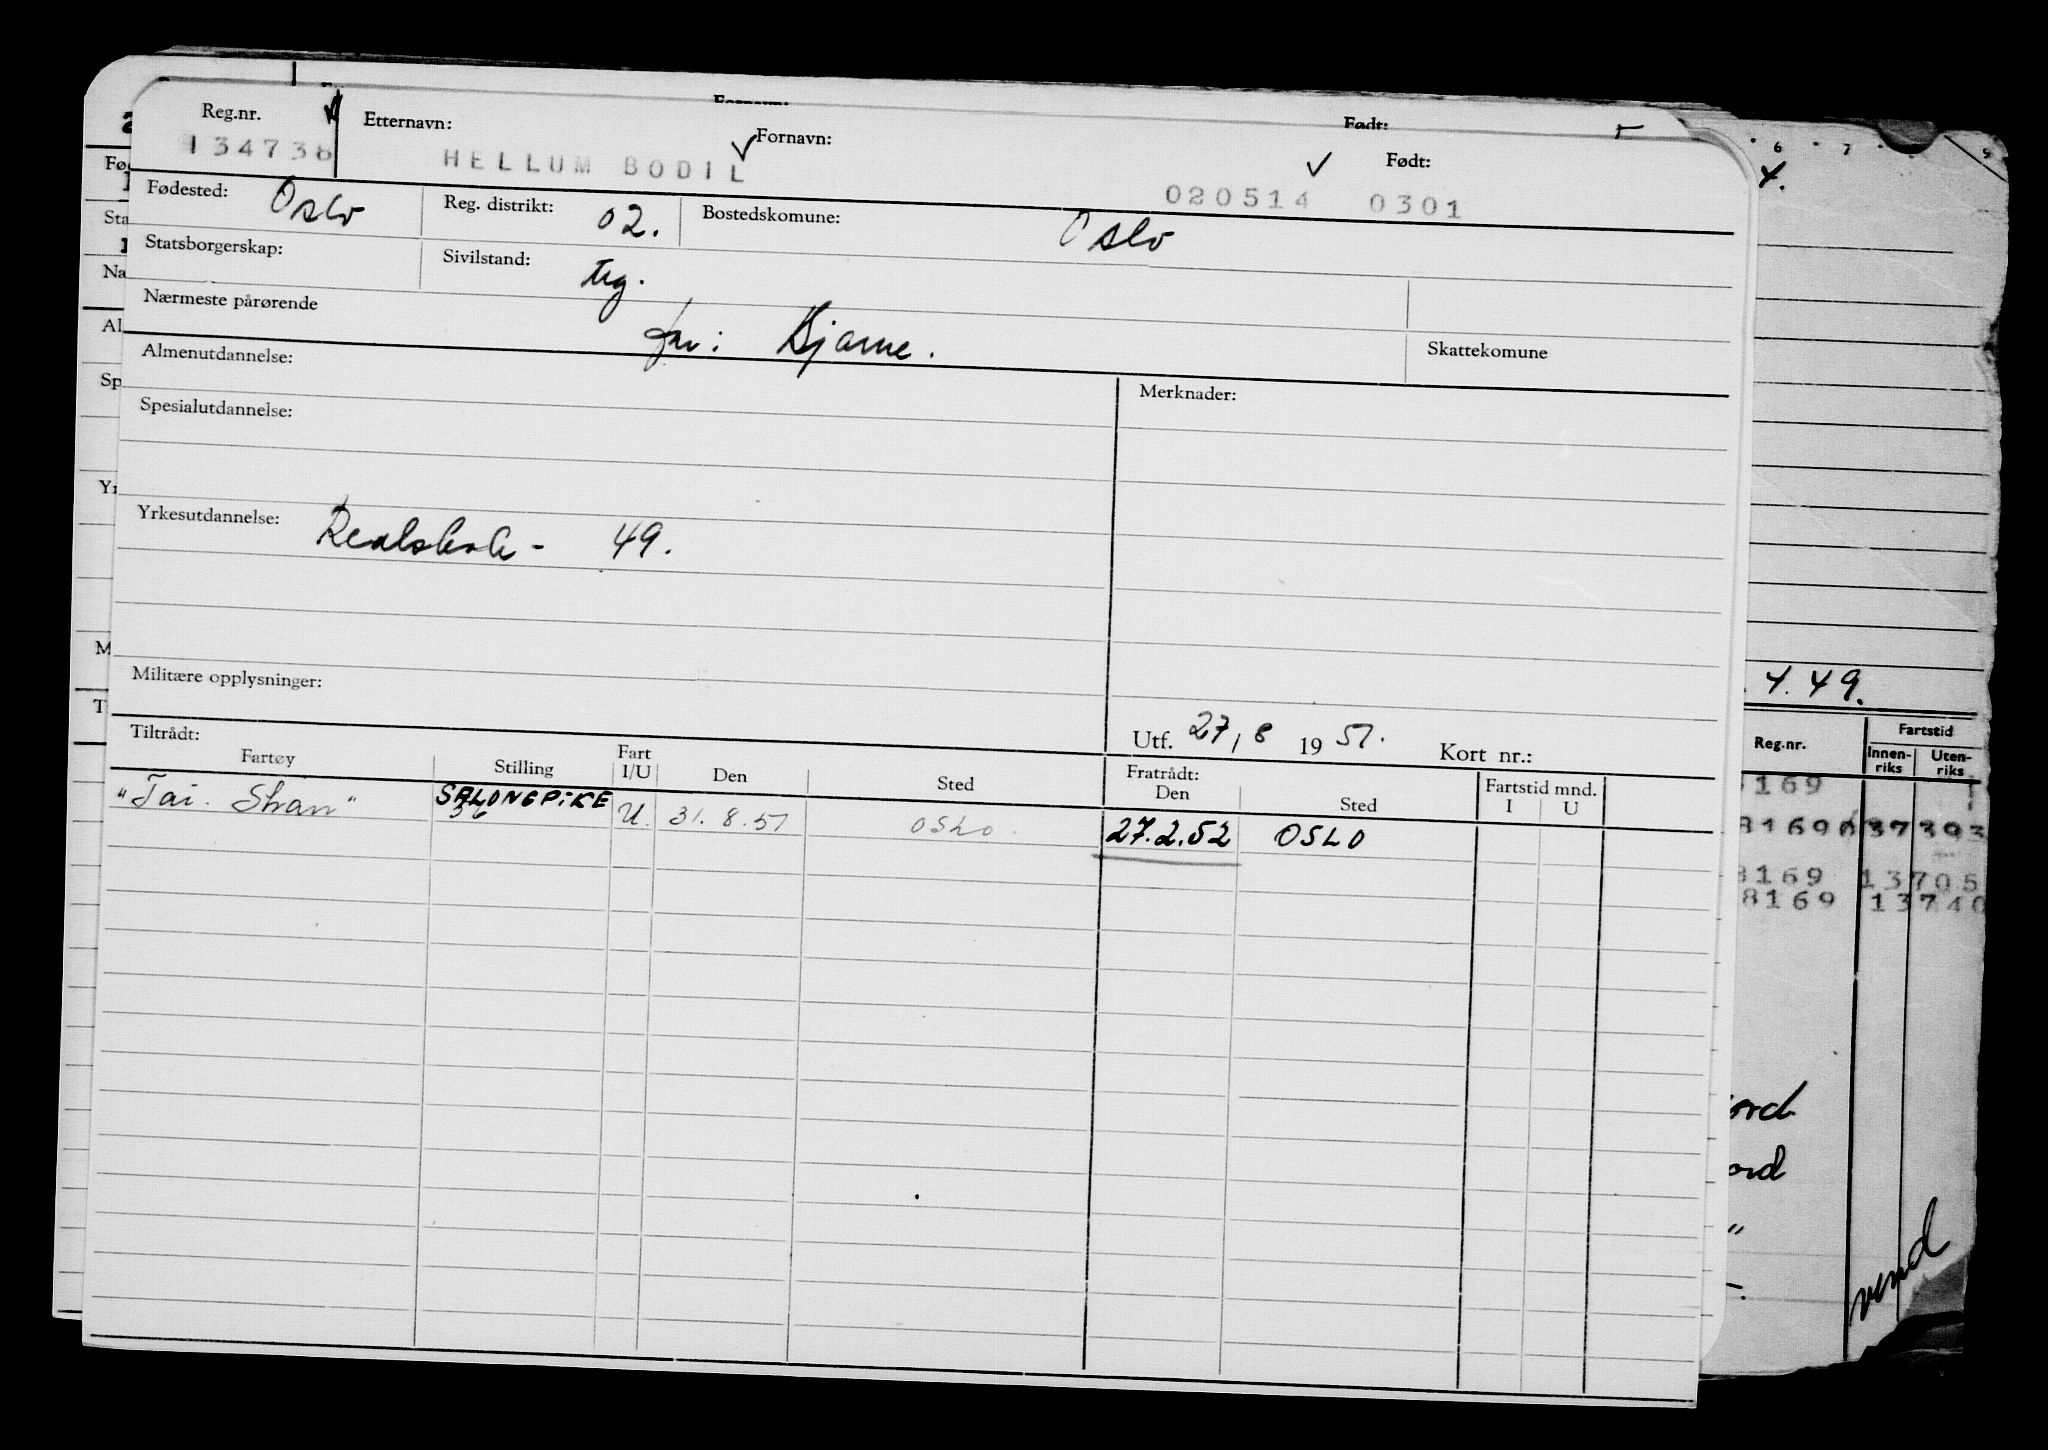 Reg.nr. Etternavn: Fornavn: Født:
134736 HELLUM BODIL 020514 0301
Fødested: Oslo Reg. distrikt: 02. Bostedskomune: Oslo
Statsborgerskap: Sivilstand: ug.
Nærmeste pårørende far: Bjarne. Skattekomune
Almenutdannelse: Merknader:
Spesialutdannelse:
Yrkesutdannelse: Realskole - 49.
Militære opplysninger:
Utf. 27/8 1951. Kort nr.:
Tiltrådt: Fratrådt:
Fartøy Stilling Fart I/U Den Sted Den Sted Fartstid mnd. I U
"Tai. Shan" SALONGPiKE 36 U. 31.8.51 OSLO. 27.2.52 OSLO
Født:
6 7
4.
4.49.
Reg.nr. Fartstid
Innen-riks Uten-riks
169
8169 37393
8169 13705
8169 13740
ord
ord
"
vend